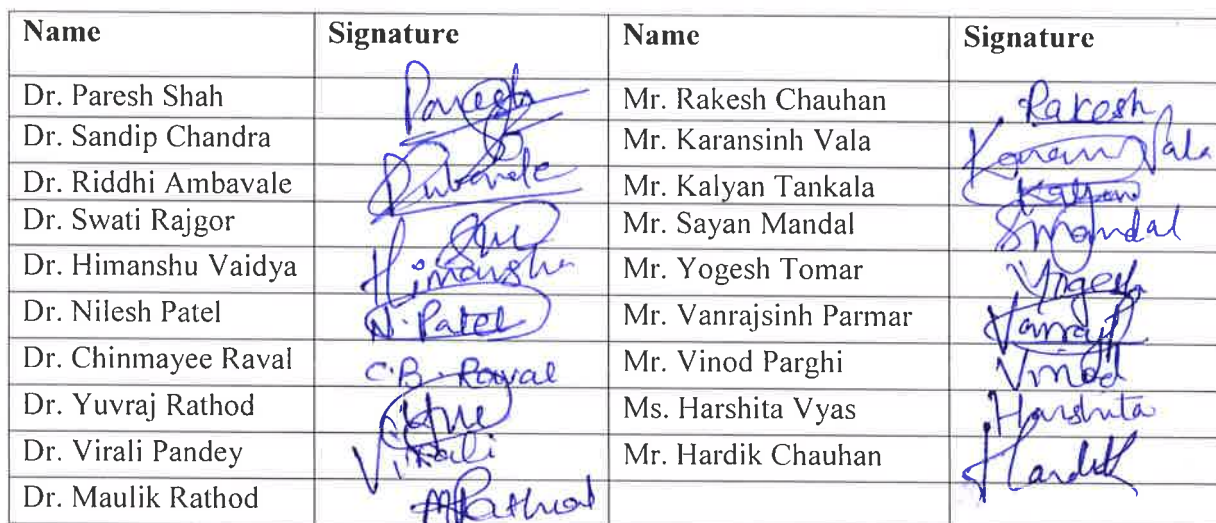 Name Signature Name Signature
Dr. Paresh Shah Paresh Mr. Rakesh Chauhan Rakesh
Dr. Sandip Chandra Mr. Karansinh Vala Karan Vala
Dr. Riddhi Ambavale Mr. Kalyan Tankala Kalyan
Dr. Swati Rajgor Mr. Sayan Mandal SMandal
Dr. Himanshu Vaidya Himanshu Mr. Yogesh Tomar Yogesh
Dr. Nilesh Patel N. Patel Mr. Vanrajsinh Parmar Vanraj
Dr. Chinmayee Raval C.B. Raval Mr. Vinod Parghi Vinod
Dr. Yuvraj Rathod Ms. Harshita Vyas Harshita
Dr. Virali Pandey Virali Mr. Hardik Chauhan Hardik
Dr. Maulik Rathod MRathod